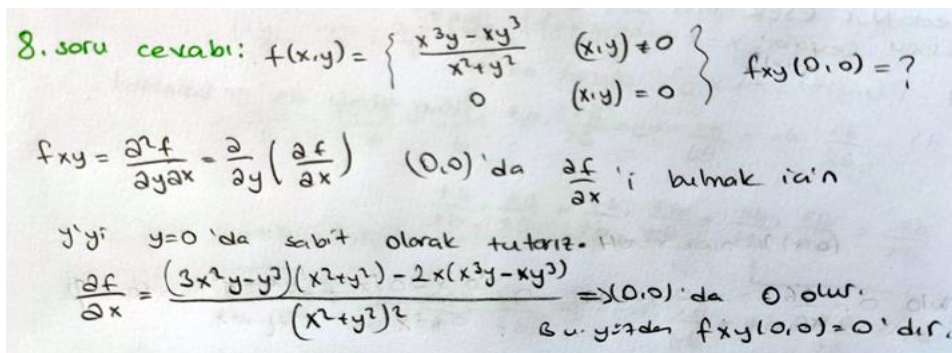 8. soru cevabı: f(x,y) = { x³y - xy³ / x²+y² (x,y) ≠ 0
0 (x,y) = 0 } fxy(0,0) = ?
fxy = ∂²f/∂y∂x = ∂/∂y (∂f/∂x) (0,0)'da ∂f/∂x 'i bulmak için
y'yi y=0 'da sabit olarak tutarız.
∂f/∂x = (3x²y-y³)(x²+y²) - 2x(x³y-xy³) / (x²+y²)² => (0,0)'da 0 olur.
Bu yüzden fxy(0,0)=0'dır.